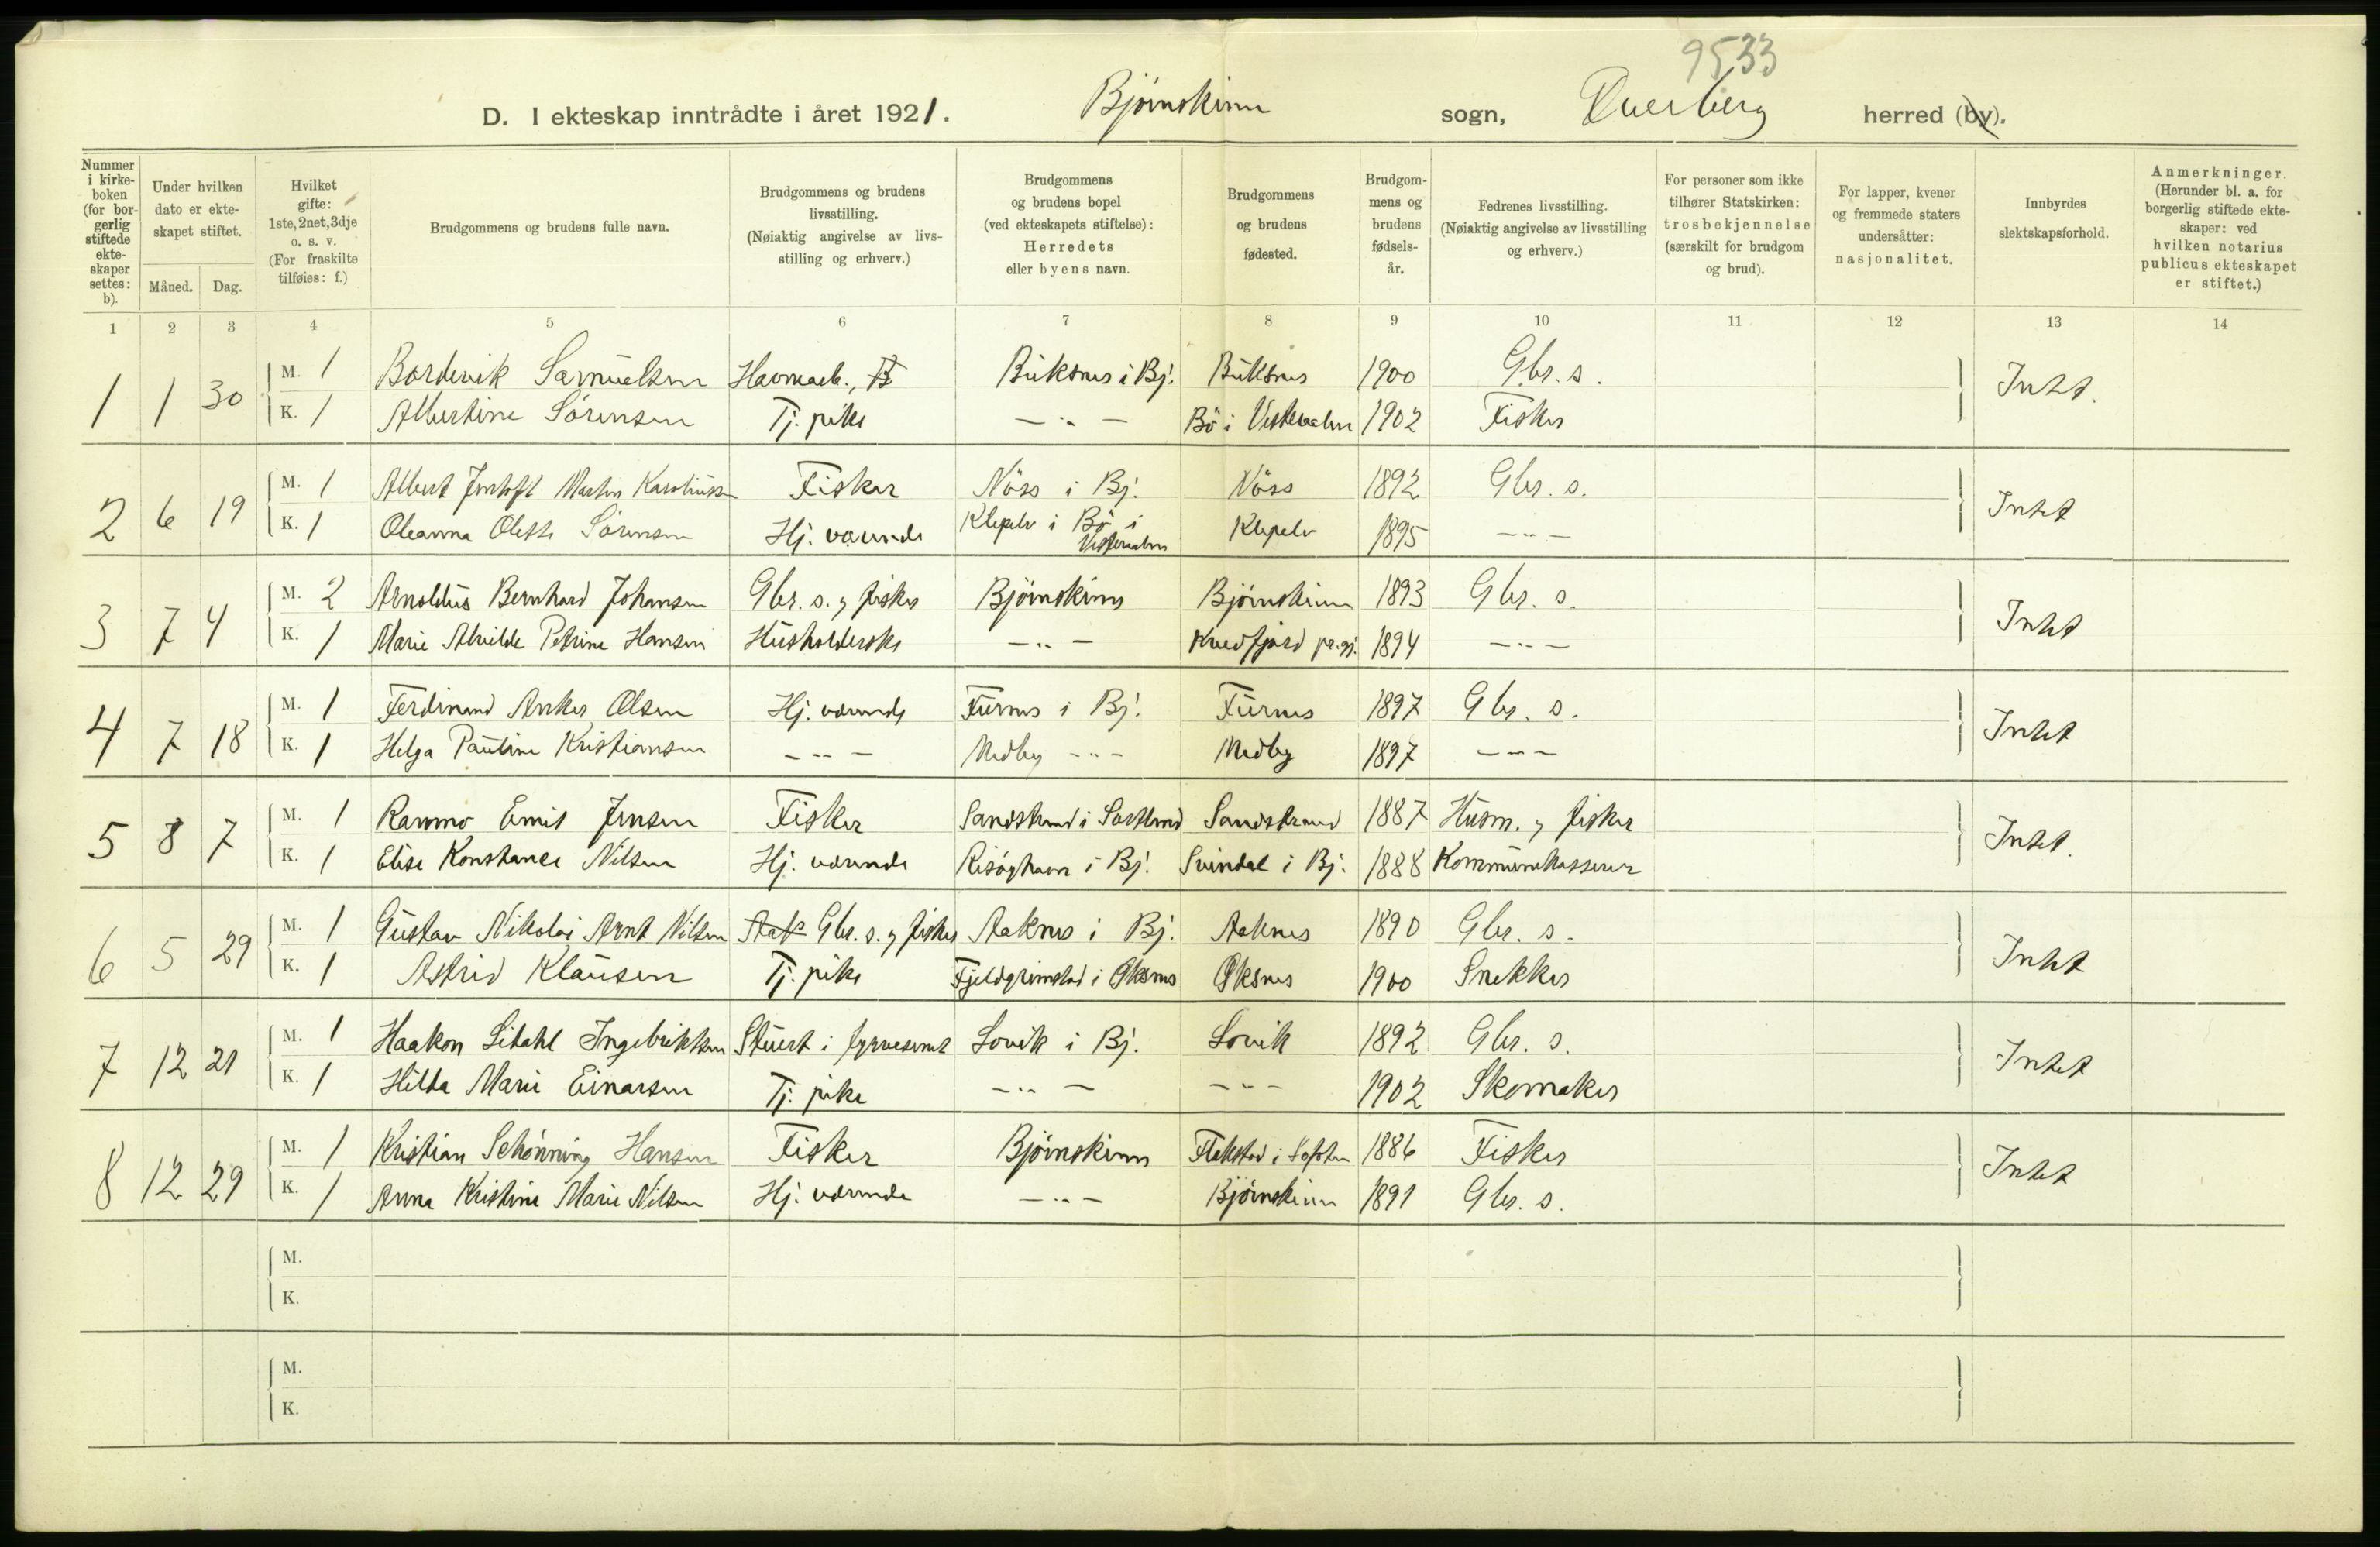 9533
D. I ekteskap inntrådte i året 1921. Bjørnskinn sogn, Dverberg herred (by).
Nummer i kirke-boken (for bor-gerlig stiftede ekte-skaper settes: b).
Under hvilken dato er ekte-skapet stiftet.
Måned. Dag.
Hvilket gifte: 1ste, 2net, 3dje o. s. v. (For fraskilte tilføies: f.)
Brudgommens og brudens fulle navn.
Brudgommens og brudens livsstilling. (Nøiaktig angivelse av livs-stilling og erhverv.)
Brudgommens og brudens bopel (ved ekteskapets stiftelse): Herredets eller byens navn.
Brudgommens og brudens fødested.
Brudgom-mens og brudens fødsels-år.
Fedrenes livsstilling. (Nøiaktig angivelse av livsstilling og erhverv.)
For personer som ikke tilhører Statskirken: trosbekjennelse (særskilt for brudgom og brud).
For lapper, kvener og fremmede staters undersåtter: nasjonalitet.
Innbyrdes slektskapsforhold.
Anmerkninger. (Herunder bl. a. for borgerlig stiftede ekte-skaper: ved hvilken notarius publicus ekteskapet er stiftet.)
1 2 3 4 5 6 7 8 9 10 11 12 13 14
1 1 30 M. 1 Bordevik Samuelsen Havnearb., B Buksnes i Bj. Buksnes 1900 Gbr. s. Intet.
K. 1 Albertine Sörensen Tj. pike — " — Bö i Vesteraalen 1902 Fisker
2 6 19 M. 1 Albert Martin Karoliussen Fisker Nöss i Bj. Nöss 1892 Gbr. s. Intet
K. 1 Oleanna Olette Sörensen Hj. værende Klepelv i Bö i Vesteraalen Klepelv 1895 — " —
3 7 4 M. 2 Arnoldus Bernhard Johansen Gbr. s. og fisker Bjørnskinn Bjørnskinn 1893 Gbr. s. Intet
K. 1 Marie Alvilde Petrine Hansen Husholderske — " — Kvedfjord pr.gj. 1894 — " —
4 7 18 M. 1 Ferdinand Anker Olsen Hj. værende Furnes i Bj. Furnes 1897 Gbr. s. Intet
K. 1 Helga Pauline Kristiansen — " — Medby — " — Medby 1897 — " —
5 8 7 M. 1 Ranmo Emil Jensen Fisker Sandstrand i Sortland Sandstrand 1887 Husm. og fisker Intet.
K. 1 Elise Konstance Nilsen Hj. værende Risöyhavn i Bj. Svindal i Bj. 1888 Kommunekasserer
6 5 29 M. 1 Gustav Nikolai Arnt Nilsen Gbr. s. og fisker Aaknes i Bj. Aaknes 1890 Gbr. s. Intet
K. 1 Astrid Klausen Tj. pike Fjeldgrimstad i Øksnes Øksnes 1900 Snekker
7 12 21 M. 1 Haakon Litahl Ingebriktsen Stuert i fyrvesenet Lovik i Bj. Lovik 1892 Gbr. s. Intet
K. 1 Hilda Marie Einarsen Tj. pike — " — — " — 1902 Skomaker
8 12 29 M. 1 Kristian Schönning Hansen Fisker Bjørnskinn Flakstad i Lofoten 1886 Fisker Intet
K. 1 Anna Kristine Marie Nilsen Hj. værende — " — Bjørnskinn 1891 Gbr. s.
M.
K.
M.
K.